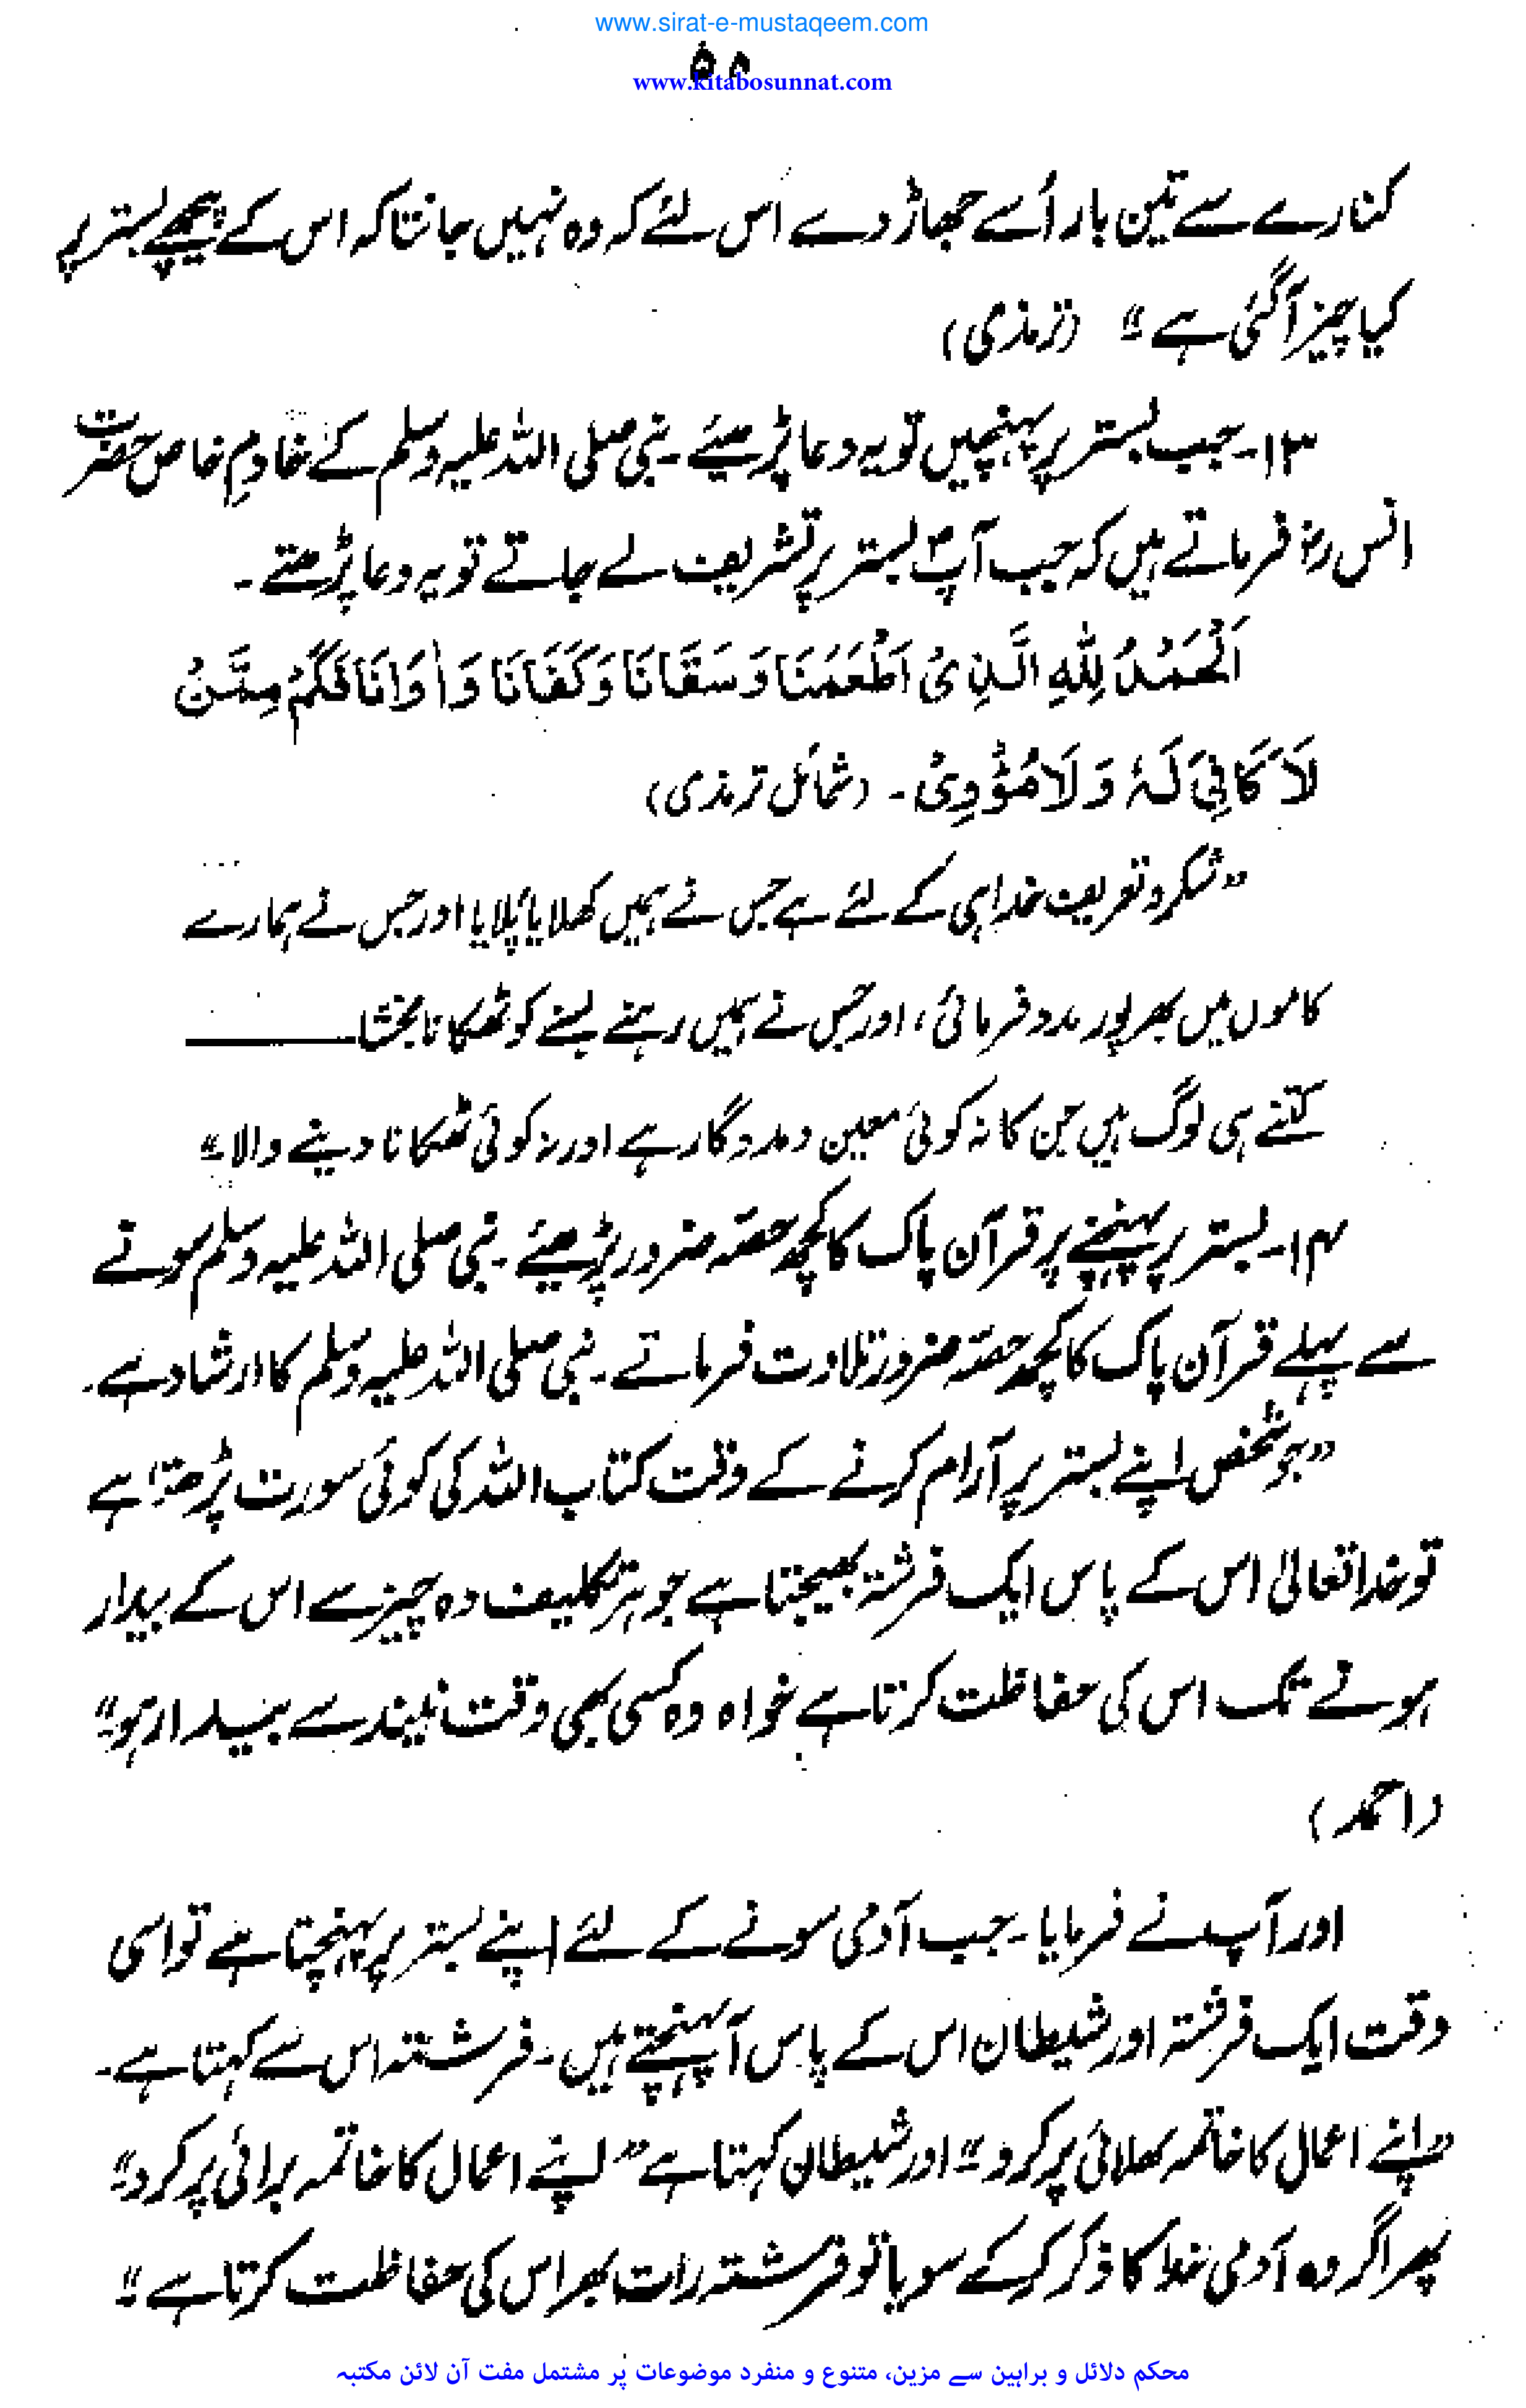 www.sirat-e-mustaqeem.com
۵۸
www.kitabosunnat.com
کنارے سے تین بار اُسے جھاڑ دے اس لئے کہ وہ نہیں جانتا کہ اس کے پیچھے بستر پر
کیا چیز آگئی ہے“ (ترمذی)
۱۳۔ جب بستر پر پہنچیں تو یہ دعا پڑھیئے۔ نبی صلی اللہ علیہ وسلم کے خادمِ خاص حضرت
انس رضؓ فرماتے ہیں کہ جب آپؐ بستر پر تشریف لے جاتے تو یہ دعا پڑھتے۔
اَلْحَمْدُ لِلّٰهِ الَّذِیْ اَطْعَمَنَا وَسَقَانَا وَكَفَانَا وَاٰوَانَا فَكَمْ مِمَّنْ
لَا كَافِیَ لَهٗ وَلَا مُؤْوِیْ۔ (شمائل ترمذی)
”شکر و تعریف خدا ہی کے لئے ہے جس نے ہمیں کھلایا پلایا اور جس نے ہمارے
کاموں میں بھرپور مدد فرمائی، اور جس نے ہمیں رہنے بسنے کو ٹھکانا بخشا ــــــــــ
کتنے ہی لوگ ہیں جن کا نہ کوئی معین و مددگار ہے اور نہ کوئی ٹھکانا دینے والا“
۱۴۔ بستر پر پہنچنے پر قرآن پاک کا کچھ حصّہ ضرور پڑھیئے۔ نبی صلی اللہ علیہ وسلم سونے
سے پہلے قرآن پاک کا کچھ حصّہ ضرور تلاوت فرماتے۔ نبی صلی اللہ علیہ وسلم کا ارشاد ہے۔
”جو شخص اپنے بستر پر آرام کرنے کے وقت کتاب اللہ کی کوئی سورت پڑھتا ہے
تو خدا تعالیٰ اس کے پاس ایک فرشتہ بھیجتا ہے جو ہر تکلیف دہ چیز سے اس کے بیدار
ہونے تک اس کی حفاظت کرتا ہے خواہ وہ کسی بھی وقت نیند سے بیدار ہو“
(احمد)
اور آپ نے فرمایا۔ جب آدمی سونے کے لئے اپنے بستر پر پہنچتا ہے تو اسی
وقت ایک فرشتہ اور شیطان اس کے پاس آ پہنچتے ہیں۔ فرشتہ اس سے کہتا ہے۔
”اپنے اعمال کا خاتمہ بھلائی پر کرو“ اور شیطان کہتا ہے ”اپنے اعمال کا خاتمہ برائی پر کرو“
پھر اگر وہ آدمی خدا کا ذکر کرکے سویا تو فرشتہ رات بھر اس کی حفاظت کرتا ہے“
محکم دلائل و براہین سے مزین، متنوع و منفرد موضوعات پر مشتمل مفت آن لائن مکتبہ